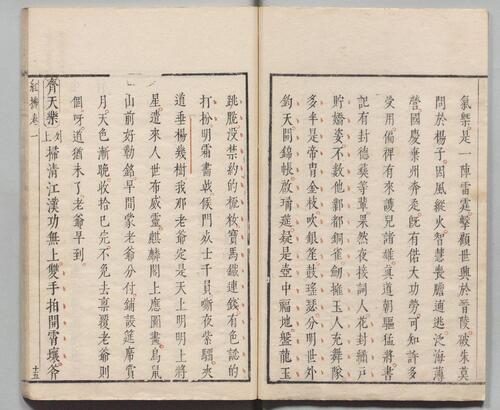 氣槩是一陣雷霆擊顧世興於晉陵破朱莫
問於楊子因風縱火智慧喪膽逋逃泛海薄
營國慶葉州奔走旣有偌大功勞可知許多
受用偹得有來護兒諸雄眞道朝驅猛將昏
記有封德彝等輩果然夜接詞人花封繡戸
貯嬌姿不數他郿都銅雀劍擁玉人充舞隊
多半是帝胄金枝吹銀笙鼓瑤瑟分明世外
鈞天開錦帳啟瑤莚疑是壺中福地盤龍玉
跳脫没禁約的極枚寶馬鐵連錢有色認的
打扮明霜畫戟候門必士千員嘶夜紫騮夾
道垂楊幾樹我那老爺定是天上明明上將
星遣來人世布威靈麒麟閣上應圖畫烏鼠
山前好勒銘早間蒙老爺分付鋪設筵席賞
月天色漸晚收拾已完不免去稟覆老爺則
個呀道猶未了老爺早到
齊天樂外上掃清江漢功無上雙手拍開霄壤斧
紅拂卷一
十五